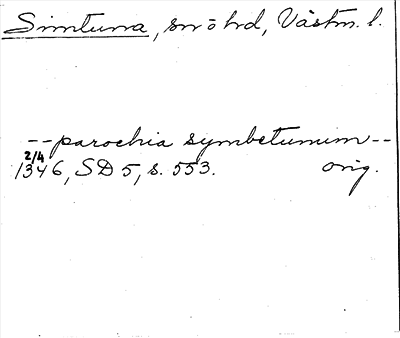 Simtuna, sn o hd, Västm. l.
--parochia symbetunum--
2/4
1346, SD 5, s. 553. orig.